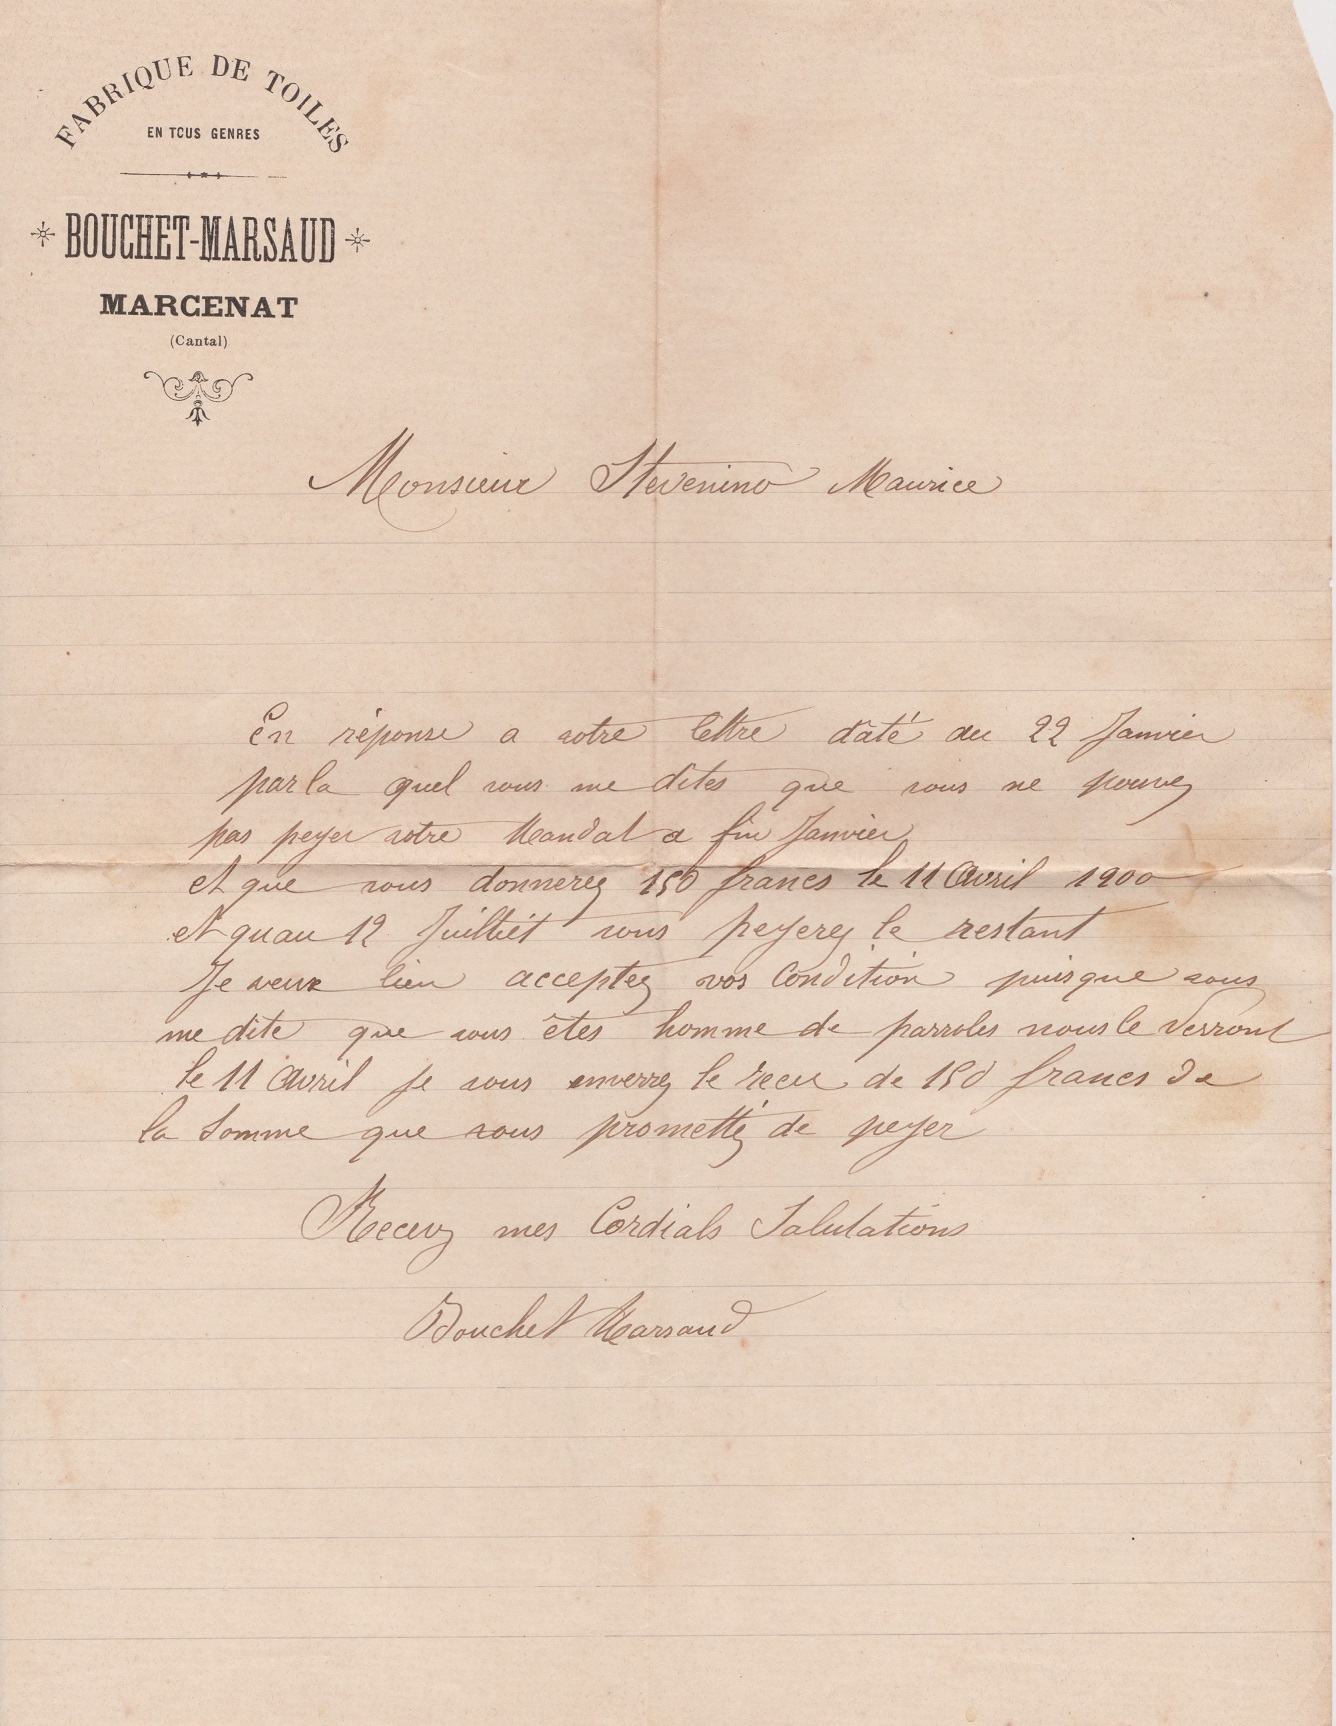 FABRIQUE DE TOILES
EN TOUS GENRES
BOUCHET-MARSAUD
MARCENAT
(Cantal)
Monsieur Stevenino Maurice
En réponse a votre lettre daté du 22 Janvier
par la quel vous me dites que vous ne pouvez
pas peyer votre Mandat a fin Janvier
et que vous donnerez 150 francs le 11 Avril 1900
et quau 12 Juilliét vous peyerez le restant
Je veux bien acceptez vos Condition puisque vous
me dite que vous êtes homme de parroles nous le Verront
le 11 Avril je vous enverrez le recu de 150 francs de
la Somme que vous promettéz de peyer
Recevz mes Cordials Salutations
Bouchet Marsaud